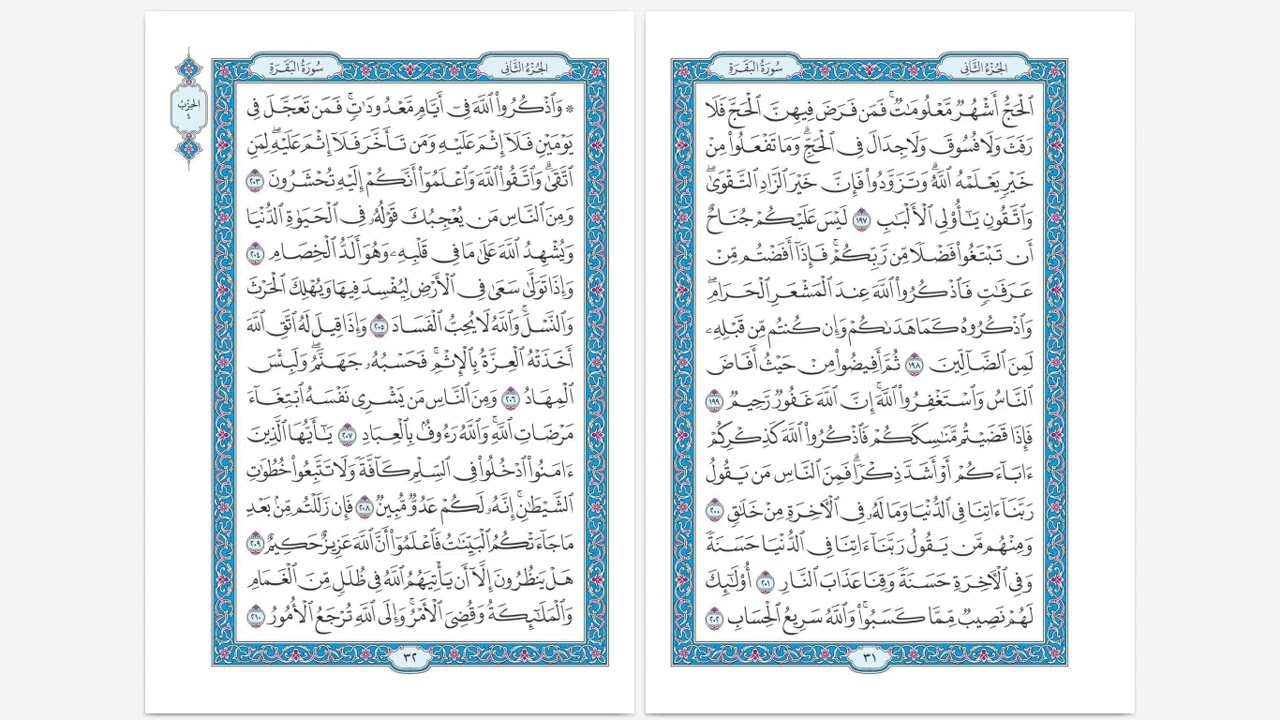 الجُزْءُ الثَّانِى
سُورَةُ البَقَرَةِ
ٱلْحَجُّ أَشْهُرٌ مَّعْلُومَٰتٌۚ فَمَن فَرَضَ فِيهِنَّ ٱلْحَجَّ فَلَا
رَفَثَ وَلَا فُسُوقَ وَلَا جِدَالَ فِى ٱلْحَجِّۗ وَمَا تَفْعَلُوا۟ مِنْ
خَيْرٍ يَعْلَمْهُ ٱللَّهُۗ وَتَزَوَّدُوا۟ فَإِنَّ خَيْرَ ٱلزَّادِ ٱلتَّقْوَىٰۖ
وَٱتَّقُونِ يَٰٓأُو۟لِى ٱلْأَلْبَٰبِ ١٩٧ لَيْسَ عَلَيْكُمْ جُنَاحٌ
أَن تَبْتَغُوا۟ فَضْلًا مِّن رَّبِّكُمْۚ فَإِذَآ أَفَضْتُم مِّنْ
عَرَفَٰتٍ فَٱذْكُرُوا۟ ٱللَّهَ عِندَ ٱلْمَشْعَرِ ٱلْحَرَامِۖ
وَٱذْكُرُوهُ كَمَا هَدَىٰكُمْ وَإِن كُنتُم مِّن قَبْلِهِۦ
لَمِنَ ٱلضَّآلِّينَ ١٩٨ ثُمَّ أَفِيضُوا۟ مِنْ حَيْثُ أَفَاضَ
ٱلنَّاسُ وَٱسْتَغْفِرُوا۟ ٱللَّهَۚ إِنَّ ٱللَّهَ غَفُورٌ رَّحِيمٌ ١٩٩
فَإِذَا قَضَيْتُم مَّنَٰسِكَكُمْ فَٱذْكُرُوا۟ ٱللَّهَ كَذِكْرِكُمْ
ءَابَآءَكُمْ أَوْ أَشَدَّ ذِكْرًاۗ فَمِنَ ٱلنَّاسِ مَن يَقُولُ
رَبَّنَآ ءَاتِنَا فِى ٱلدُّنْيَا وَمَا لَهُۥ فِى ٱلْءَاخِرَةِ مِنْ خَلَٰقٍ ٢٠٠
وَمِنْهُم مَّن يَقُولُ رَبَّنَآ ءَاتِنَا فِى ٱلدُّنْيَا حَسَنَةً
وَفِى ٱلْءَاخِرَةِ حَسَنَةً وَقِنَا عَذَابَ ٱلنَّارِ ٢٠١ أُو۟لَٰٓئِكَ
لَهُمْ نَصِيبٌ مِّمَّا كَسَبُوا۟ۚ وَٱللَّهُ سَرِيعُ ٱلْحِسَابِ ٢٠٢
٣١
الجُزْءُ الثَّانِى
سُورَةُ البَقَرَةِ
الحِزْبُ
٤
* وَٱذْكُرُوا۟ ٱللَّهَ فِىٓ أَيَّامٍ مَّعْدُودَٰتٍۚ فَمَن تَعَجَّلَ فِى
يَوْمَيْنِ فَلَآ إِثْمَ عَلَيْهِ وَمَن تَأَخَّرَ فَلَآ إِثْمَ عَلَيْهِۖ لِمَنِ
ٱتَّقَىٰۗ وَٱتَّقُوا۟ ٱللَّهَ وَٱعْلَمُوٓا۟ أَنَّكُمْ إِلَيْهِ تُحْشَرُونَ ٢٠٣
وَمِنَ ٱلنَّاسِ مَن يُعْجِبُكَ قَوْلُهُۥ فِى ٱلْحَيَوٰةِ ٱلدُّنْيَا
وَيُشْهِدُ ٱللَّهَ عَلَىٰ مَا فِى قَلْبِهِۦ وَهُوَ أَلَدُّ ٱلْخِصَامِ ٢٠٤
وَإِذَا تَوَلَّىٰ سَعَىٰ فِى ٱلْأَرْضِ لِيُفْسِدَ فِيهَا وَيُهْلِكَ ٱلْحَرْثَ
وَٱلنَّسْلَۚ وَٱللَّهُ لَا يُحِبُّ ٱلْفَسَادَ ٢٠٥ وَإِذَا قِيلَ لَهُ ٱتَّقِ ٱللَّهَ
أَخَذَتْهُ ٱلْعِزَّةُ بِٱلْإِثْمِۚ فَحَسْبُهُۥ جَهَنَّمُۖ وَلَبِئْسَ
ٱلْمِهَادُ ٢٠٦ وَمِنَ ٱلنَّاسِ مَن يَشْرِى نَفْسَهُ ٱبْتِغَآءَ
مَرْضَاتِ ٱللَّهِۚ وَٱللَّهُ رَءُوفٌۢ بِٱلْعِبَادِ ٢٠٧ يَٰٓأَيُّهَا ٱلَّذِينَ
ءَامَنُوا۟ ٱدْخُلُوا۟ فِى ٱلسِّلْمِ كَآفَّةً وَلَا تَتَّبِعُوا۟ خُطُوَٰتِ
ٱلشَّيْطَٰنِۚ إِنَّهُۥ لَكُمْ عَدُوٌّ مُّبِينٌ ٢٠٨ فَإِن زَلَلْتُم مِّنۢ بَعْدِ
مَا جَآءَتْكُمُ ٱلْبَيِّنَٰتُ فَٱعْلَمُوٓا۟ أَنَّ ٱللَّهَ عَزِيزٌ حَكِيمٌ ٢٠٩
هَلْ يَنظُرُونَ إِلَّآ أَن يَأْتِيَهُمُ ٱللَّهُ فِى ظُلَلٍ مِّنَ ٱلْغَمَامِ
وَٱلْمَلَٰٓئِكَةُ وَقُضِىَ ٱلْأَمْرُۚ وَإِلَى ٱللَّهِ تُرْجَعُ ٱلْأُمُورُ ٢١٠
٣٢